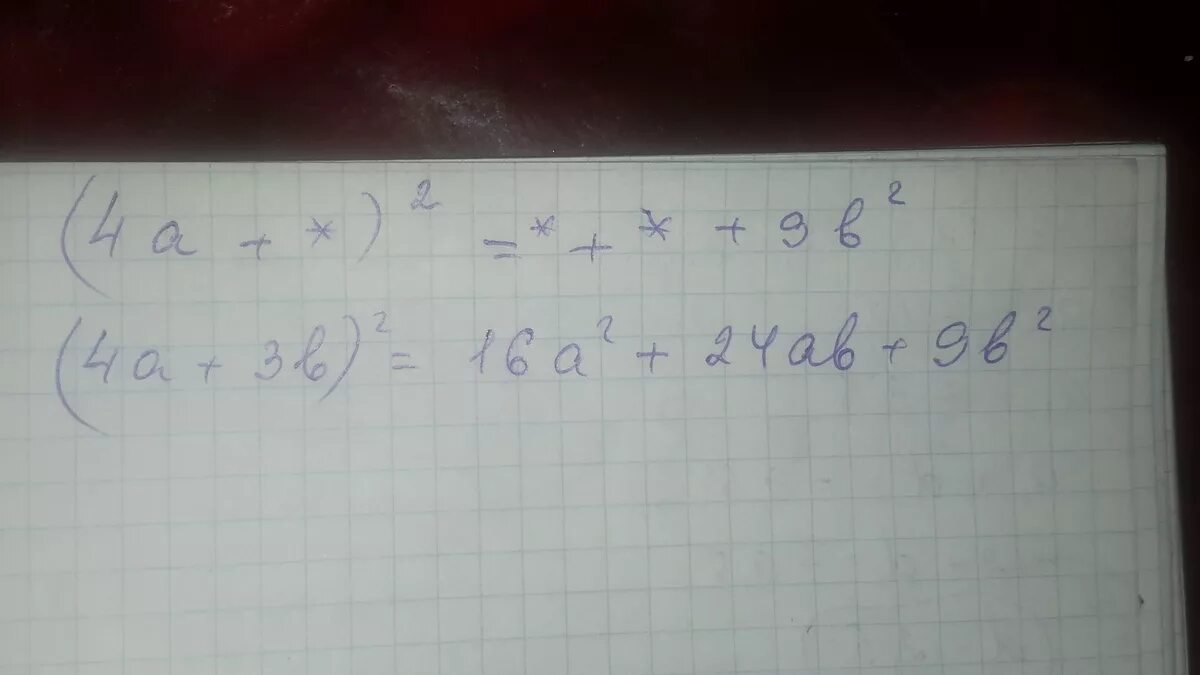 (4a + *)² = * + * + 9b²
(4a + 3b)² = 16a² + 24ab + 9b²